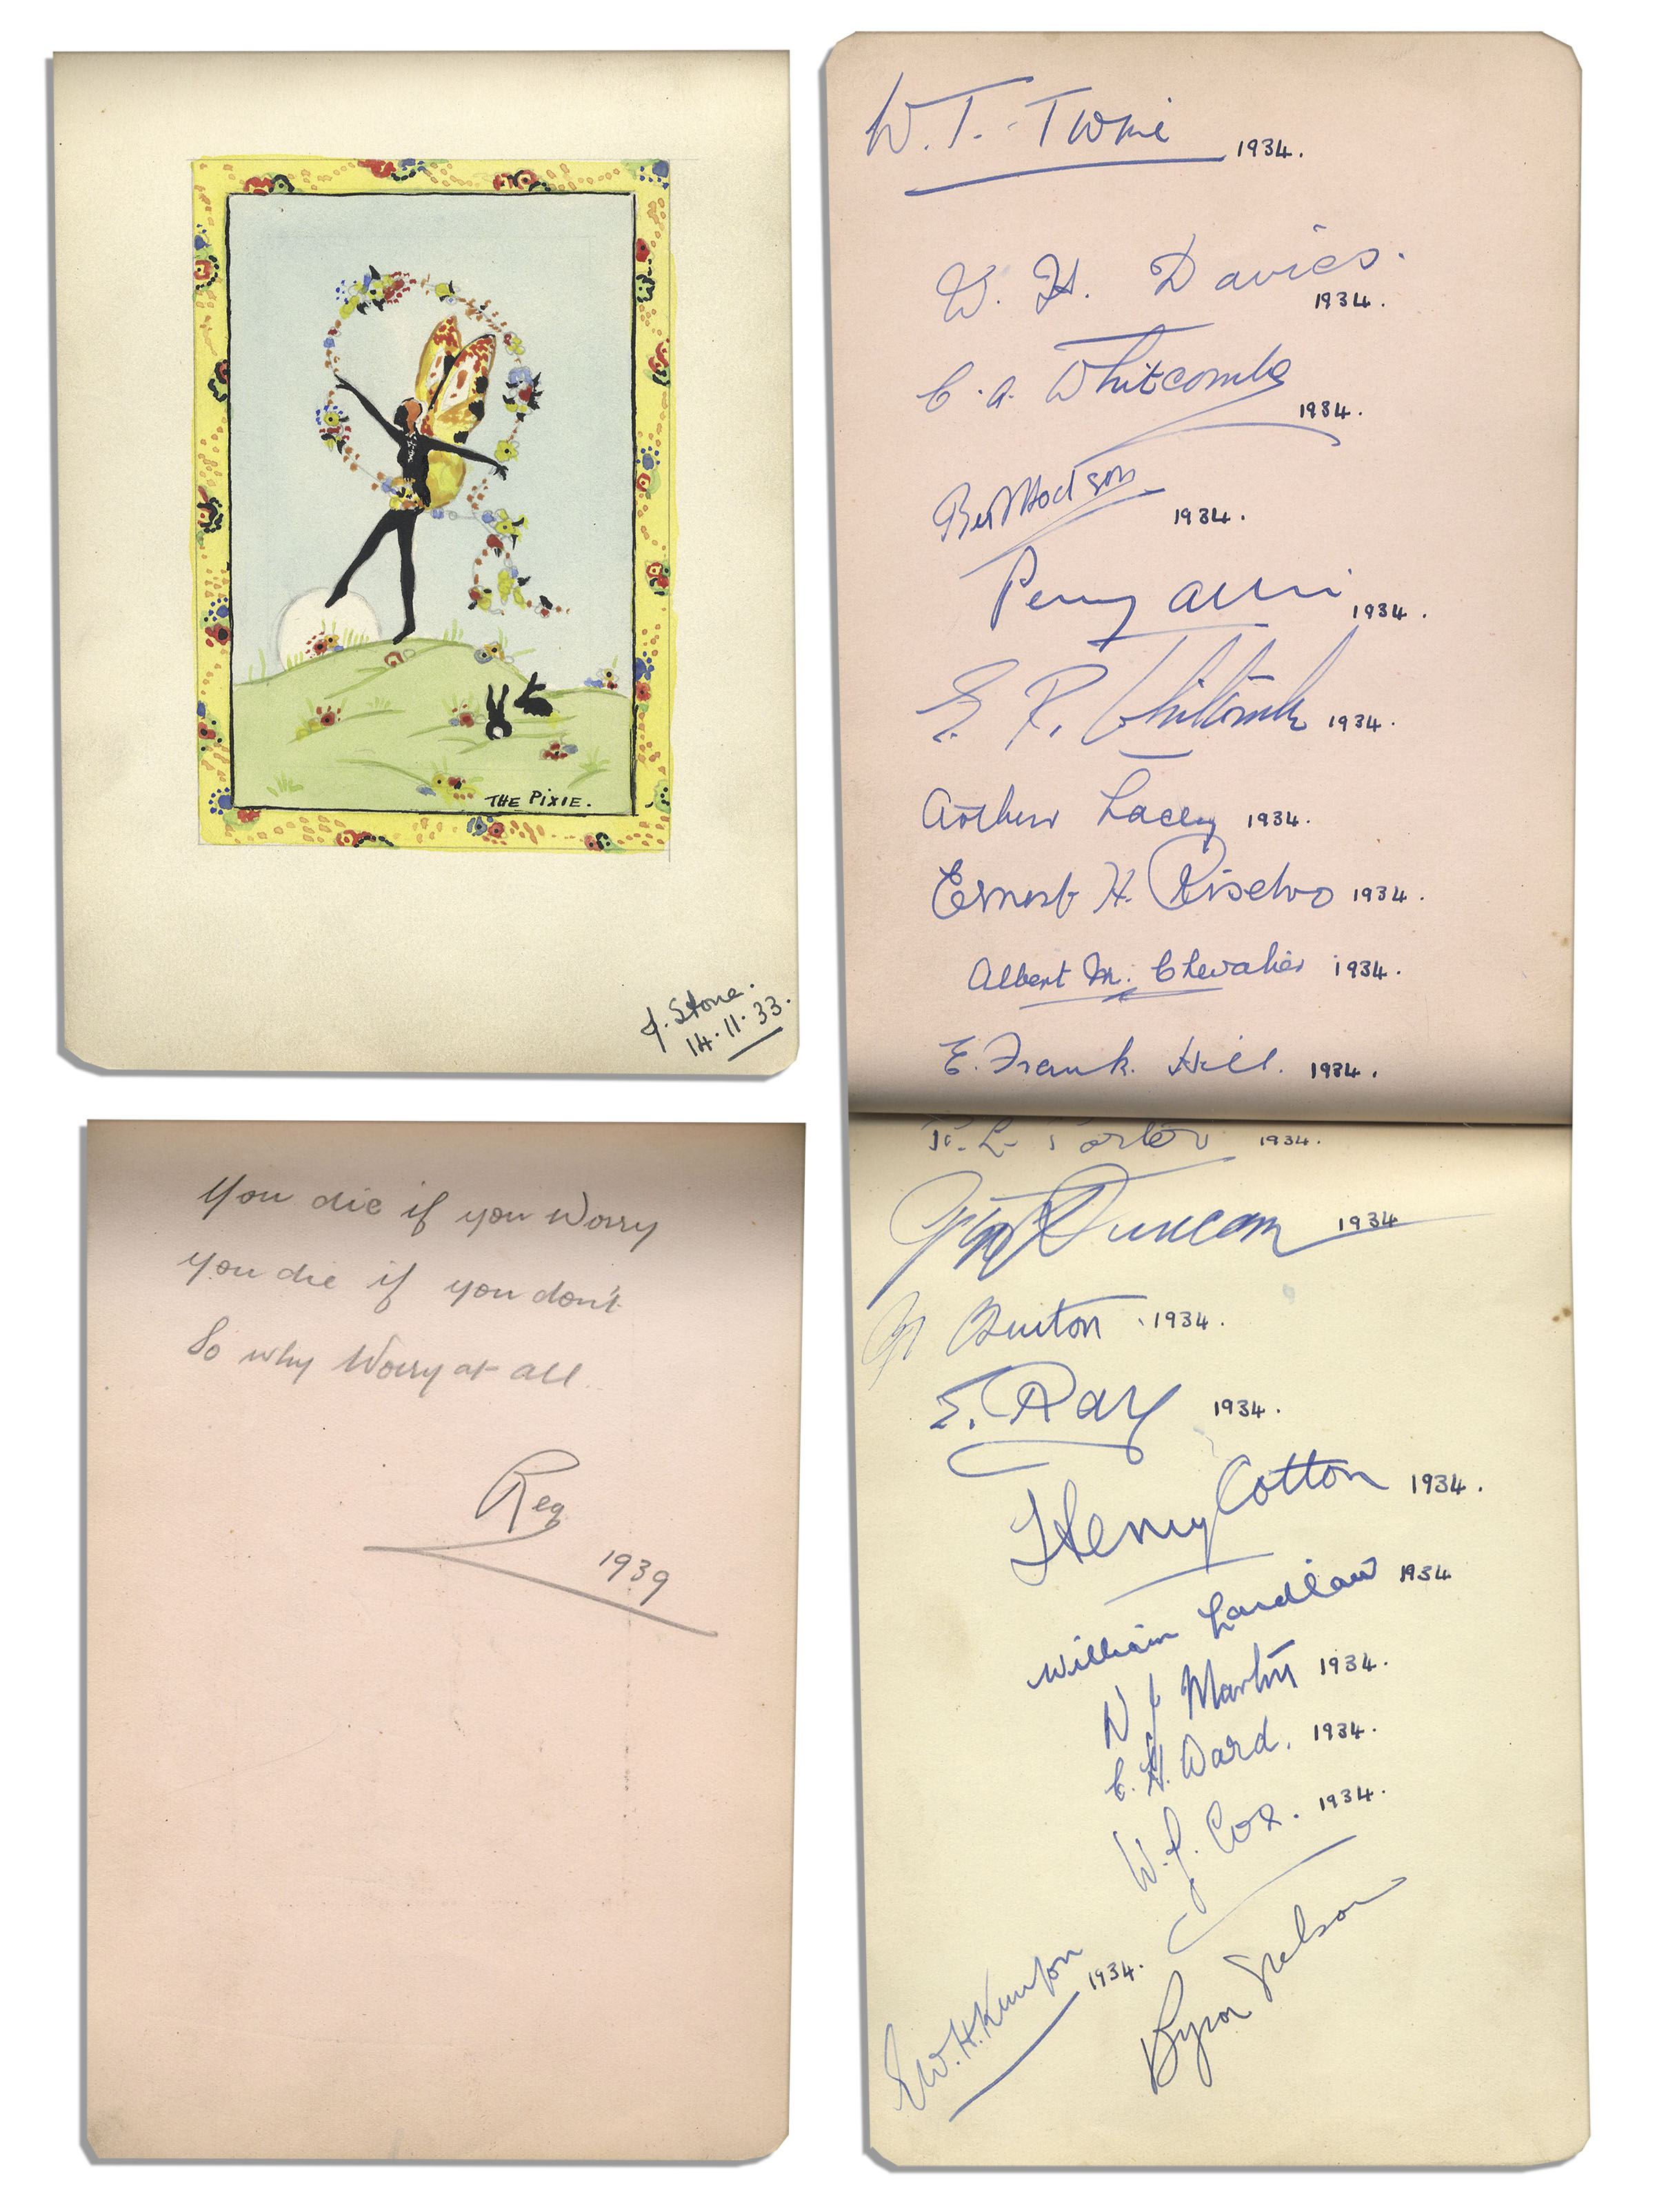 THE PIXIE.
J. Stone.
14.11.33.
You die if you Worry
You die if you don't
So why Worry at all
Reg
1939
W. T. Twine 1934.
W. H. Davies.
1934.
C. A. Whitcombe
1934.
Bert Hodson
1934.
Percy Alliss 1934.
E. R. Whitcombe 1934.
Arthur Lacey 1934.
Ernest H. 1934.
Albert M. Chevalier 1934.
E. Frank Hill. 1934.
1934.
Duncan 1934
Burton 1934.
E. Ray 1934.
Henry Cotton 1934.
William Laidlaw 1934
N J Martin 1934.
C. H. Ward. 1934.
W. J. Cox. 1934.
W. H. 1934.
Byron Nelson